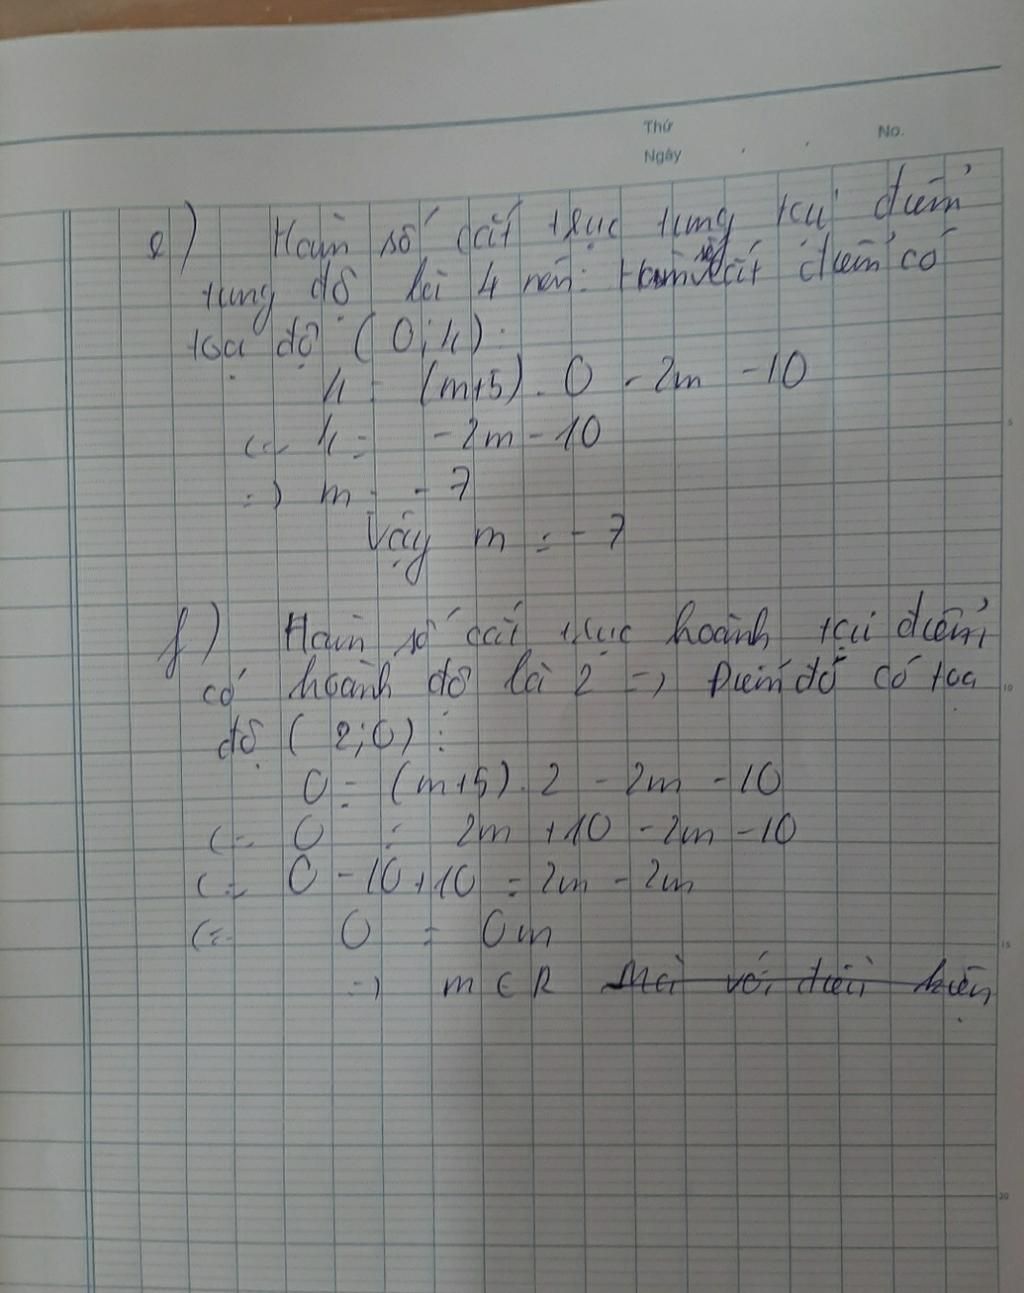 Thứ
No.
Ngày
e) Hàm số cắt trục tung tại điểm
tung độ là 4 nên: Hàm số cắt điểm có
tọa độ (0; 4):
4 = (m+5). 0 - 2m - 10
<=> 4 = -2m - 10
=> m = -7
Vậy m = -7
f) Hàm số cắt trục hoành tại điểm
có hoành độ là 2 => Điểm đó có tọa
độ (2; 0):
0 = (m+5). 2 - 2m - 10
<=> 0 = 2m + 10 - 2m - 10
<=> 0 - 10 + 10 = 2m - 2m
<=> 0 = 0m
=> m ∈ R Mà với điều kiện
5
10
15
20